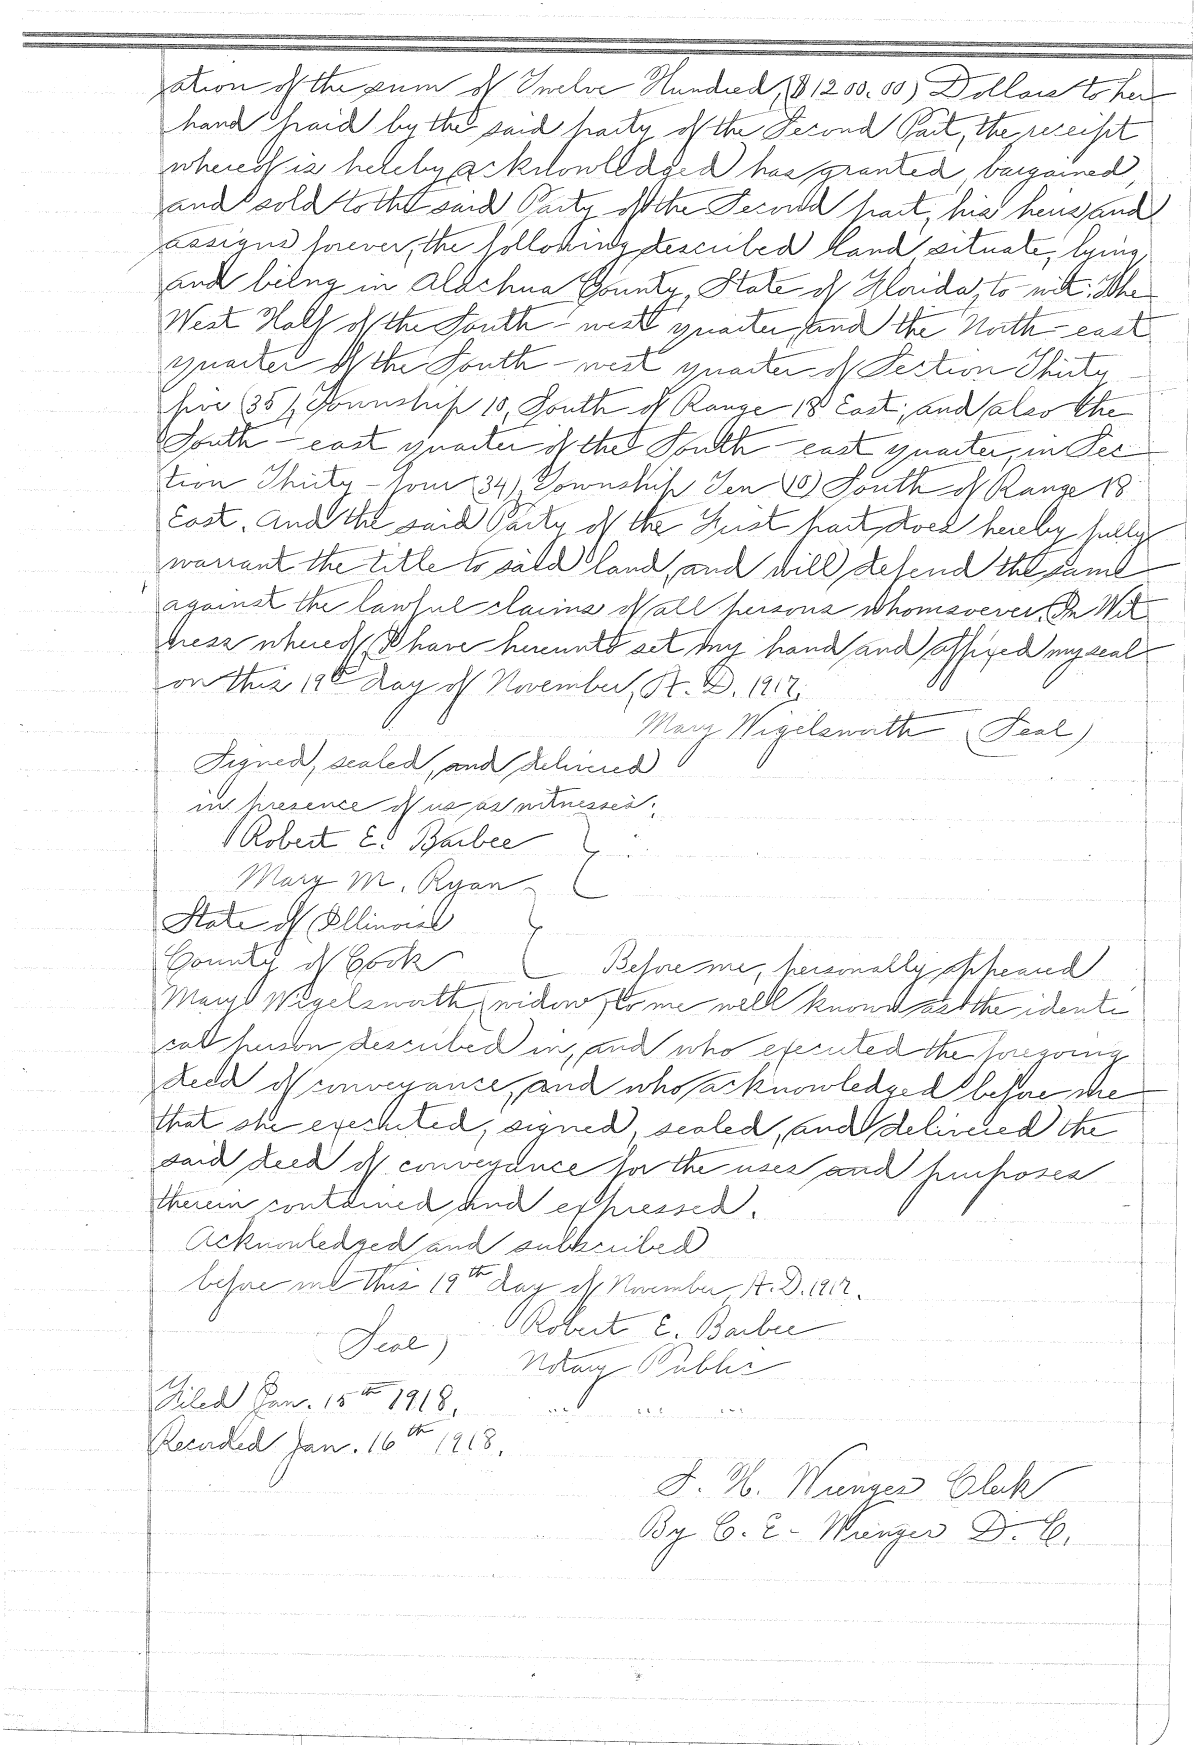 ation of the sum of Twelve Hundred, ($1200.00) Dollars to her
hand paid by the said party of the Second Part, the receipt
whereof is hereby acknowledged has granted, bargained,
and sold to the said Party of the Second part, his heirs and
assigns forever, the following described land, situate, lying,
and being in Alachua County, State of Florida, to wit: The
West Half of the South-west quarter, and the North-east
quarter of the South-west quarter of Section Thirty
five (35), Township 10, South of Range 18 East; and also the
South-east quarter of the South-east quarter, in Sec
tion Thirty-four (34), Township Ten (10) South of Range 18
East. And the said Party of the First part, does hereby fully
warrant the title to said land, and will defend the same
against the lawful claims of all persons whomsoever. In Wit
ness whereof, I have hereunto set my hand and affixed my seal
on this 19th day of November, A. D. 1917.
Mary Wigelsworth (Seal)
Signed, sealed, and delivered
in presence of us as witnesses:
Robert E. Barbee
Mary M. Ryan
State of Illinois
County of Cook Before me, personally appeared
Mary Wigelsworth, (widow) to me well known as the identi
cal person described in, and who executed the foregoing
deed of conveyance, and who acknowledged before me
that she executed, signed, sealed, and delivered the
said deed of conveyance for the uses and purposes
therein contained and expressed.
Acknowledged and subscribed
before me this 19th day of November, A. D. 1917.
Robert E. Barbee
Seal) Notary Public
Filed Jan. 15th 1918.
Recorded Jan. 16th 1918.
S. H. Wienges Clerk
By C. E. Wienges D. C.